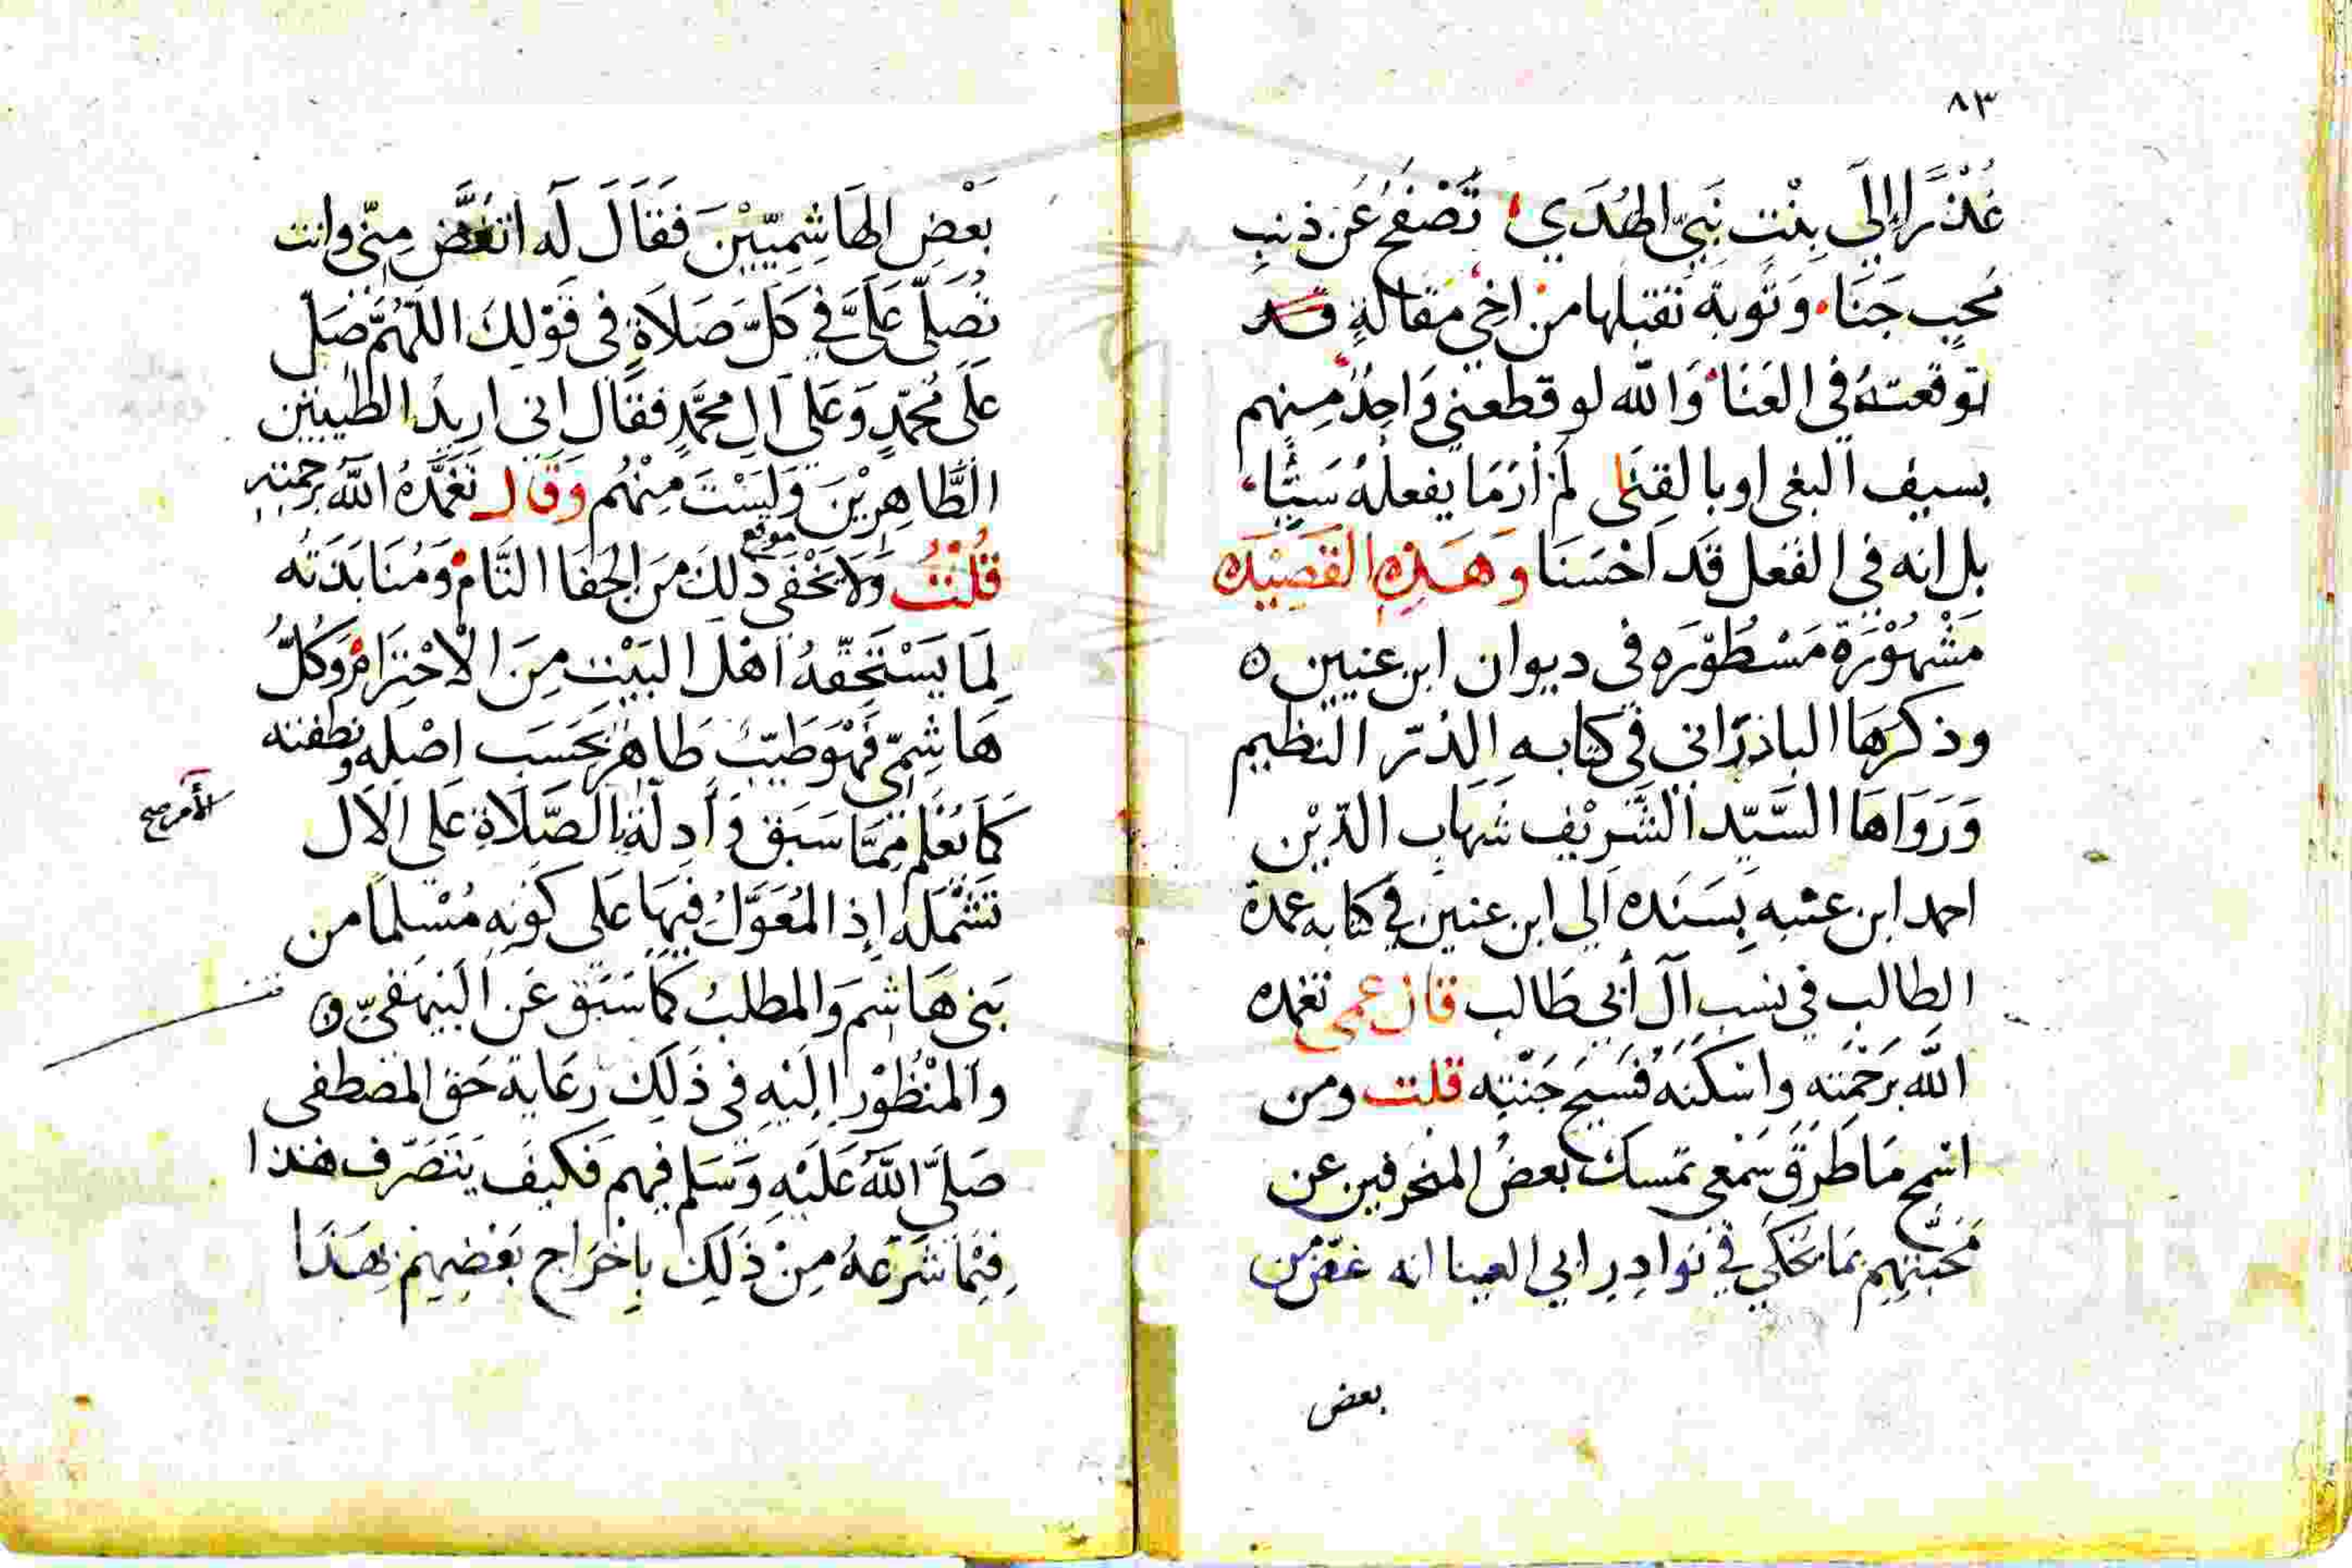 ٨٣
عُذْرًا إلَى بِنْتِ نَبِيِّ الهُدَي تَصْفَحُ عَن ذنبِ
مُحِبٍ جَنَا وَتَوبة تقبلها من اخِي مَقَالةٍ قد
توقعتهُ في العَنَا وَالله لو قطعني وَاحِدٌ مِنهم
بسيف البغى اوبالقِنَى لَم أرَمَا يفعلهُ سَيِّئًا
بل انه في الفعل قَد احْسَنَا وَهَذِهِ القَصِيْدَه
مَشْهُوْرَة مَسْطُوْرَه في ديوان ابن عنيين ه
وذكرَهَا الباذرَاني في كتابه الدُرّ النظيم
وَرَوَاهَا السَّيّد الشَّرِيْف شهَاب الدّيْن
احمد ابن عتبه بِسَنَده الي ابن عنين في كتابه عمدة
الطالب في نسب آل أبي طَالب قال عمى تغمده
الله برَحْمَته واسْكَنَهُ فَسَيح جَنّتِه قلت ومن
اسْمج مَا طَرَقَ سَمْعي تمسك بعضُ المنحَرفين عن
مَحَبّتِهِم بمَا يُحْكَي في نَوادِرِ ابي العينا انه غضّ من
بعض
بَعْضِ الهَاشِمِيّيْنَ فَقَالَ لَه اتغُضَّ مِنّي وانت
تُصَلّي عَلَيَّ في كلّ صَلَاةٍ في قَوْلِكَ اللّهُمَّ صَلّ
عَلَى مُحَمّدٍ وَعَلى الِ محَمَّدٍ فقَال اني اريدُ الطيبين
الطَّاهِرِيْنَ وَلَيسْتَ مِنْهُم وَقَال تَغَمَّدَهُ اللهُ برَحْمَتِهِ
قُلْتُ وَلا يَخْفَى موقع ذلكَ مَن الجفَا التَّام وَمُنَابَذَتُه
لِمَا يَسْتَحِقّهُ اهْل البَيْتِ مِنَ الْاحْتِرَامِ وَكُلُّ
هَاشِمِيّ فَهْوَ طَيّبٌ طَاهرٌ بحَسَب اصْلِه ونطفته
كمَا يُعْلم مِمَّا سَبَق وَأدِلّة الصَّلَاة عَلى الال
الأمر صح
تَشْمَلهُ إذِ المُعَوَّلُ فِيهَا عَلي كَونِهِ مُسْلمًا من
بَني هَاشم وَالمطلبُ كمَا سَبَق عَن البَيهَقيّ ه
والمنْظُوْر الَيْهِ في ذَلِكَ رِعَاية حَق المُصطفى
صَلَّي اللهُ عَلَيْهِ وَسَلم فيهم فكيفَ يَتَصَرّف هَذا
فِيْمَا شَرَعَهُ مِنْ ذَلِكَ بإخْرَاج بَعْضِهِمْ بِهَذَا